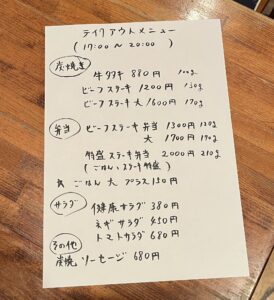 テイクアウトメニュー
(17:00～20:00)
炭焼き
牛タタキ 880円 100g
ビーフステーキ 1200円 130g
ビーフステーキ 大 1600円 170g
弁当 ビーフステーキ弁当 1300円 120g
大 1700円 170g
特盛ステーキ弁当 2000円 210g
(ごはん、ステーキ特盛)
ごはん 大 プラス150円
サラダ 健康サラダ 380円
ネギサラダ 450円
トマトサラダ 680円
その他
炭焼 ソーセージ 680円